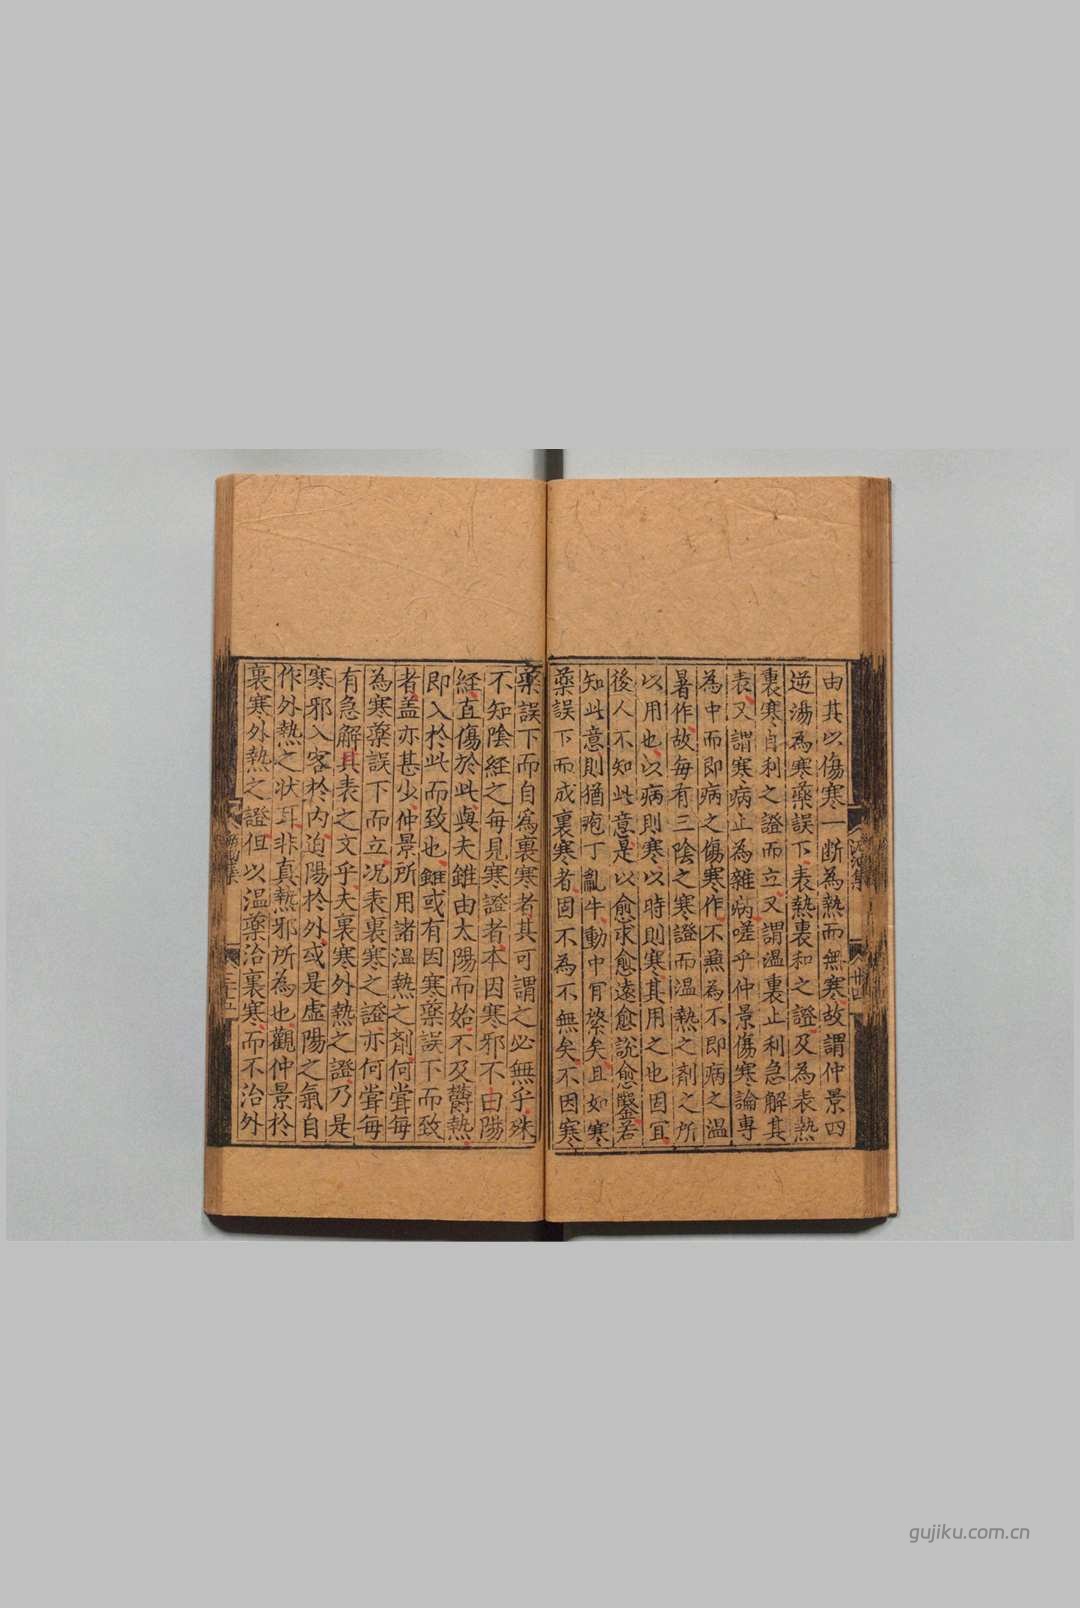 由其以傷寒一断為熱而無寒故謂仲景四
逆湯為寒藥誤下表熱裏和之證及為表熱
裏寒自利之證而立又謂温裏止利急解其
表又謂寒病止為雜病嗟乎仲景傷寒論專
為中而即病之傷寒作不蕪為不即病之温
暑作故每有三陰之寒證而温熱之剤之所
以用也以病則寒以時則寒其用之也固冝
後人不知此意是以愈求愈遠愈說愈鑿若
知此意則猶庖丁觧牛動中肎綮矣且如寒
藥誤下而成裏寒者固不為不無矣不因寒
藥誤下而自為裏寒者其可謂之必無乎殊
不知陰經之每見寒證者本因寒邪不由陽
經直傷於此與夫雖由太陽而始不及鬱熱
即入於此而致也雖或有因寒藥誤下而致
者蓋亦甚少仲景所用諸温熱之剤何甞每
為寒藥誤下而立况表裏寒之證亦何甞每
有急解其表之文乎夫裏寒外熱之證乃是
寒邪入客於內迫陽於外或是虚陽之氣自
作外熱之状耳非真熱邪所為也觀仲景於
裏寒外熱之證但以温藥治裏寒而不治外
泝洄集
廿四
泝洄集
二十五
gujiku.com.cn